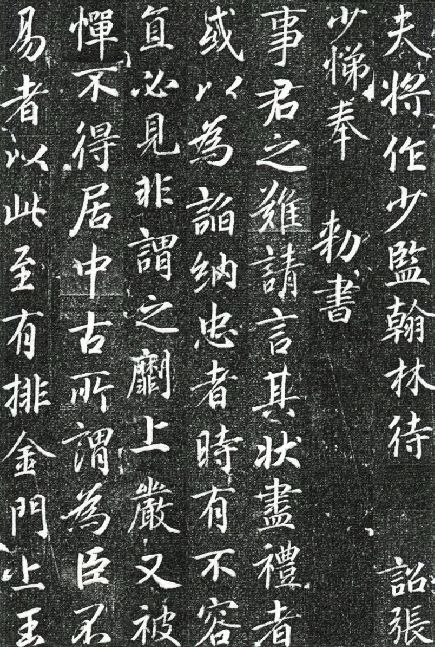 夫將作少監翰林待 詔張
少悌奉 勅書
事君之難請言其狀盡禮者
或以為謟納忠者時有不容
直必見非謂之劘上嚴又被
憚不得居中古所謂為臣不
易者以此至有排金門上玉